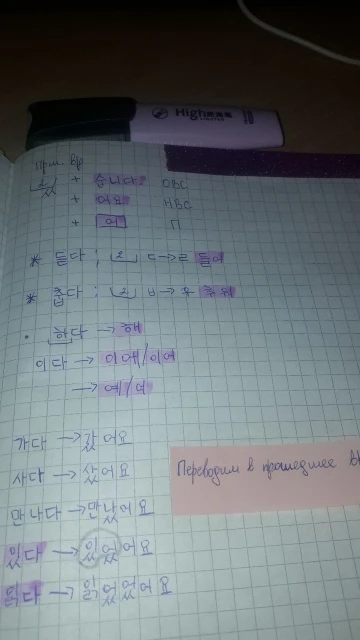 High
Прош. вр
2 ㅆ + 습니다 ОВС
+ 어요 НВС
+ 어 П
* 듣다 ; 2 ㄷ→ㄹ 들어
* 춥다 ; 2 ㅂ→우 추워
· 하다 → 해
이다 → 이에/이어
→ 예/여
가다 → 갔어요
사다 → 샀어요
만나다 → 만났어요
Переводим в прошедшее
있다 → 있었어요